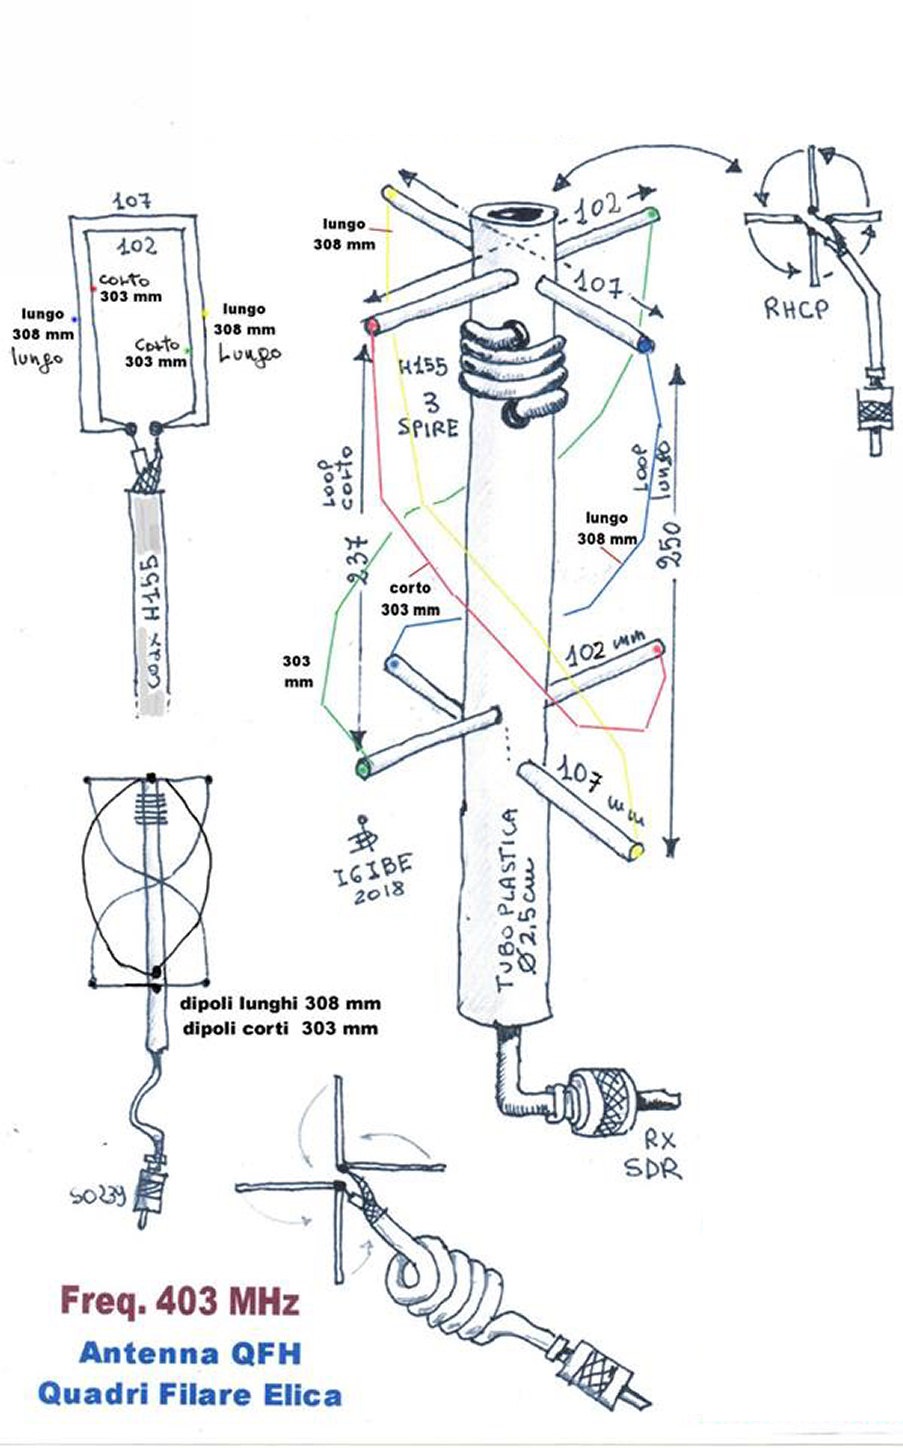 107
102
corto
303 mm
lungo
308 mm
lungo
lungo
308 mm
Lungo
corto
303 mm
coax H155
lungo
308 mm
102
107
RHCP
H155
3
SPIRE
LOOP
corto
237
LOOP
lungo
250
lungo
308 mm
corto
303 mm
303
mm
102 mm
107 mm
IGIBE
2018
TUBO PLASTICA
Ø 2,5cm
dipoli lunghi 308 mm
dipoli corti 303 mm
SO239
RX
SDR
Freq. 403 MHz
Antenna QFH
Quadri Filare Elica